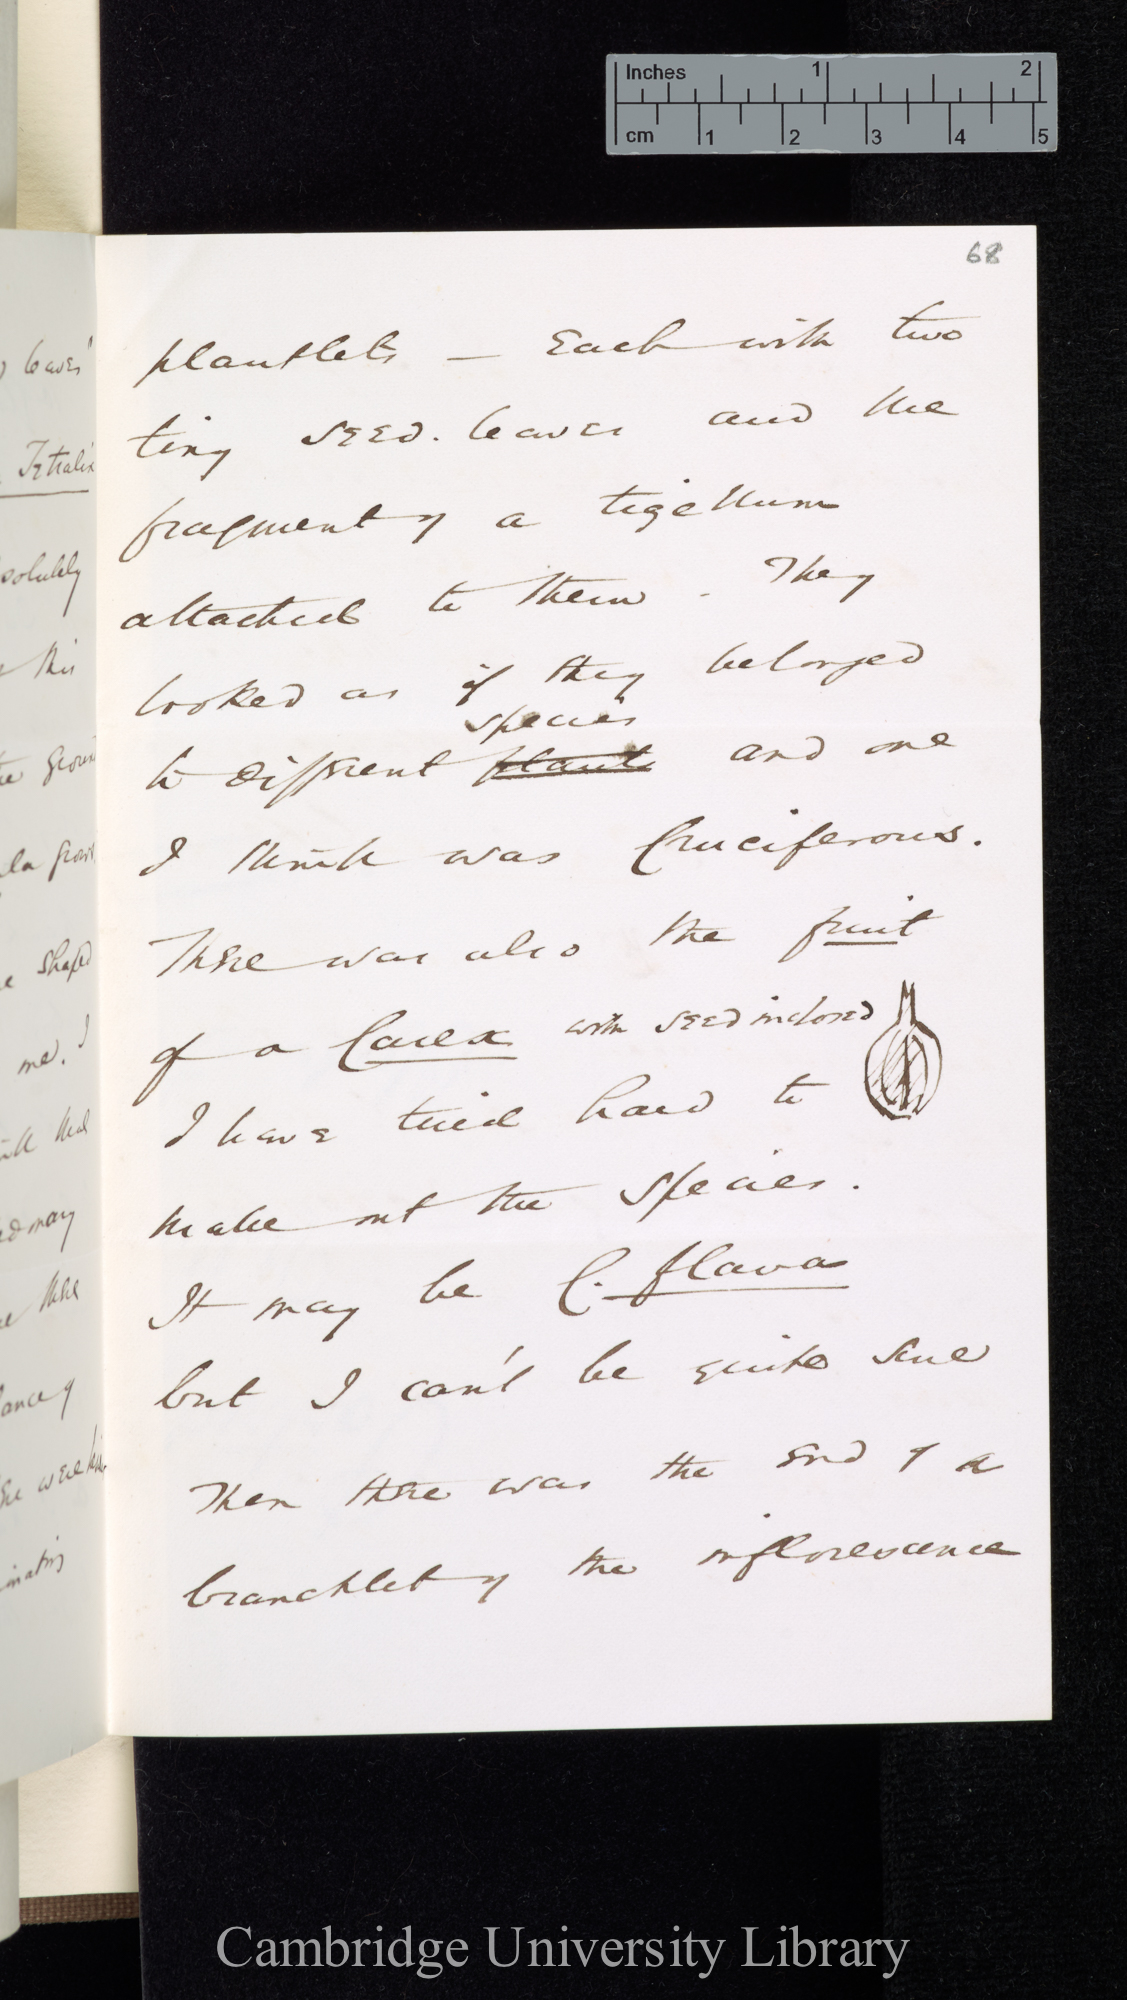 Inches 1 2
cm 1 2 3 4 5
68
leaves"
Tetralix
this
shaped
me. I
may
there
plantlets — Each with two
tiny seed-leaves and the
fragment of a tigellum
attached to them. They
looked as if they belonged
species
to different plants and one
I think was Cruciferous.
There was also the fruit
of a Carex with seed inclosed
I have tried hard to
make out the species.
It may be C. flava
but I can't be quite sure
Then there was the end of a
branchlet of the inflorescence
Cambridge University Library